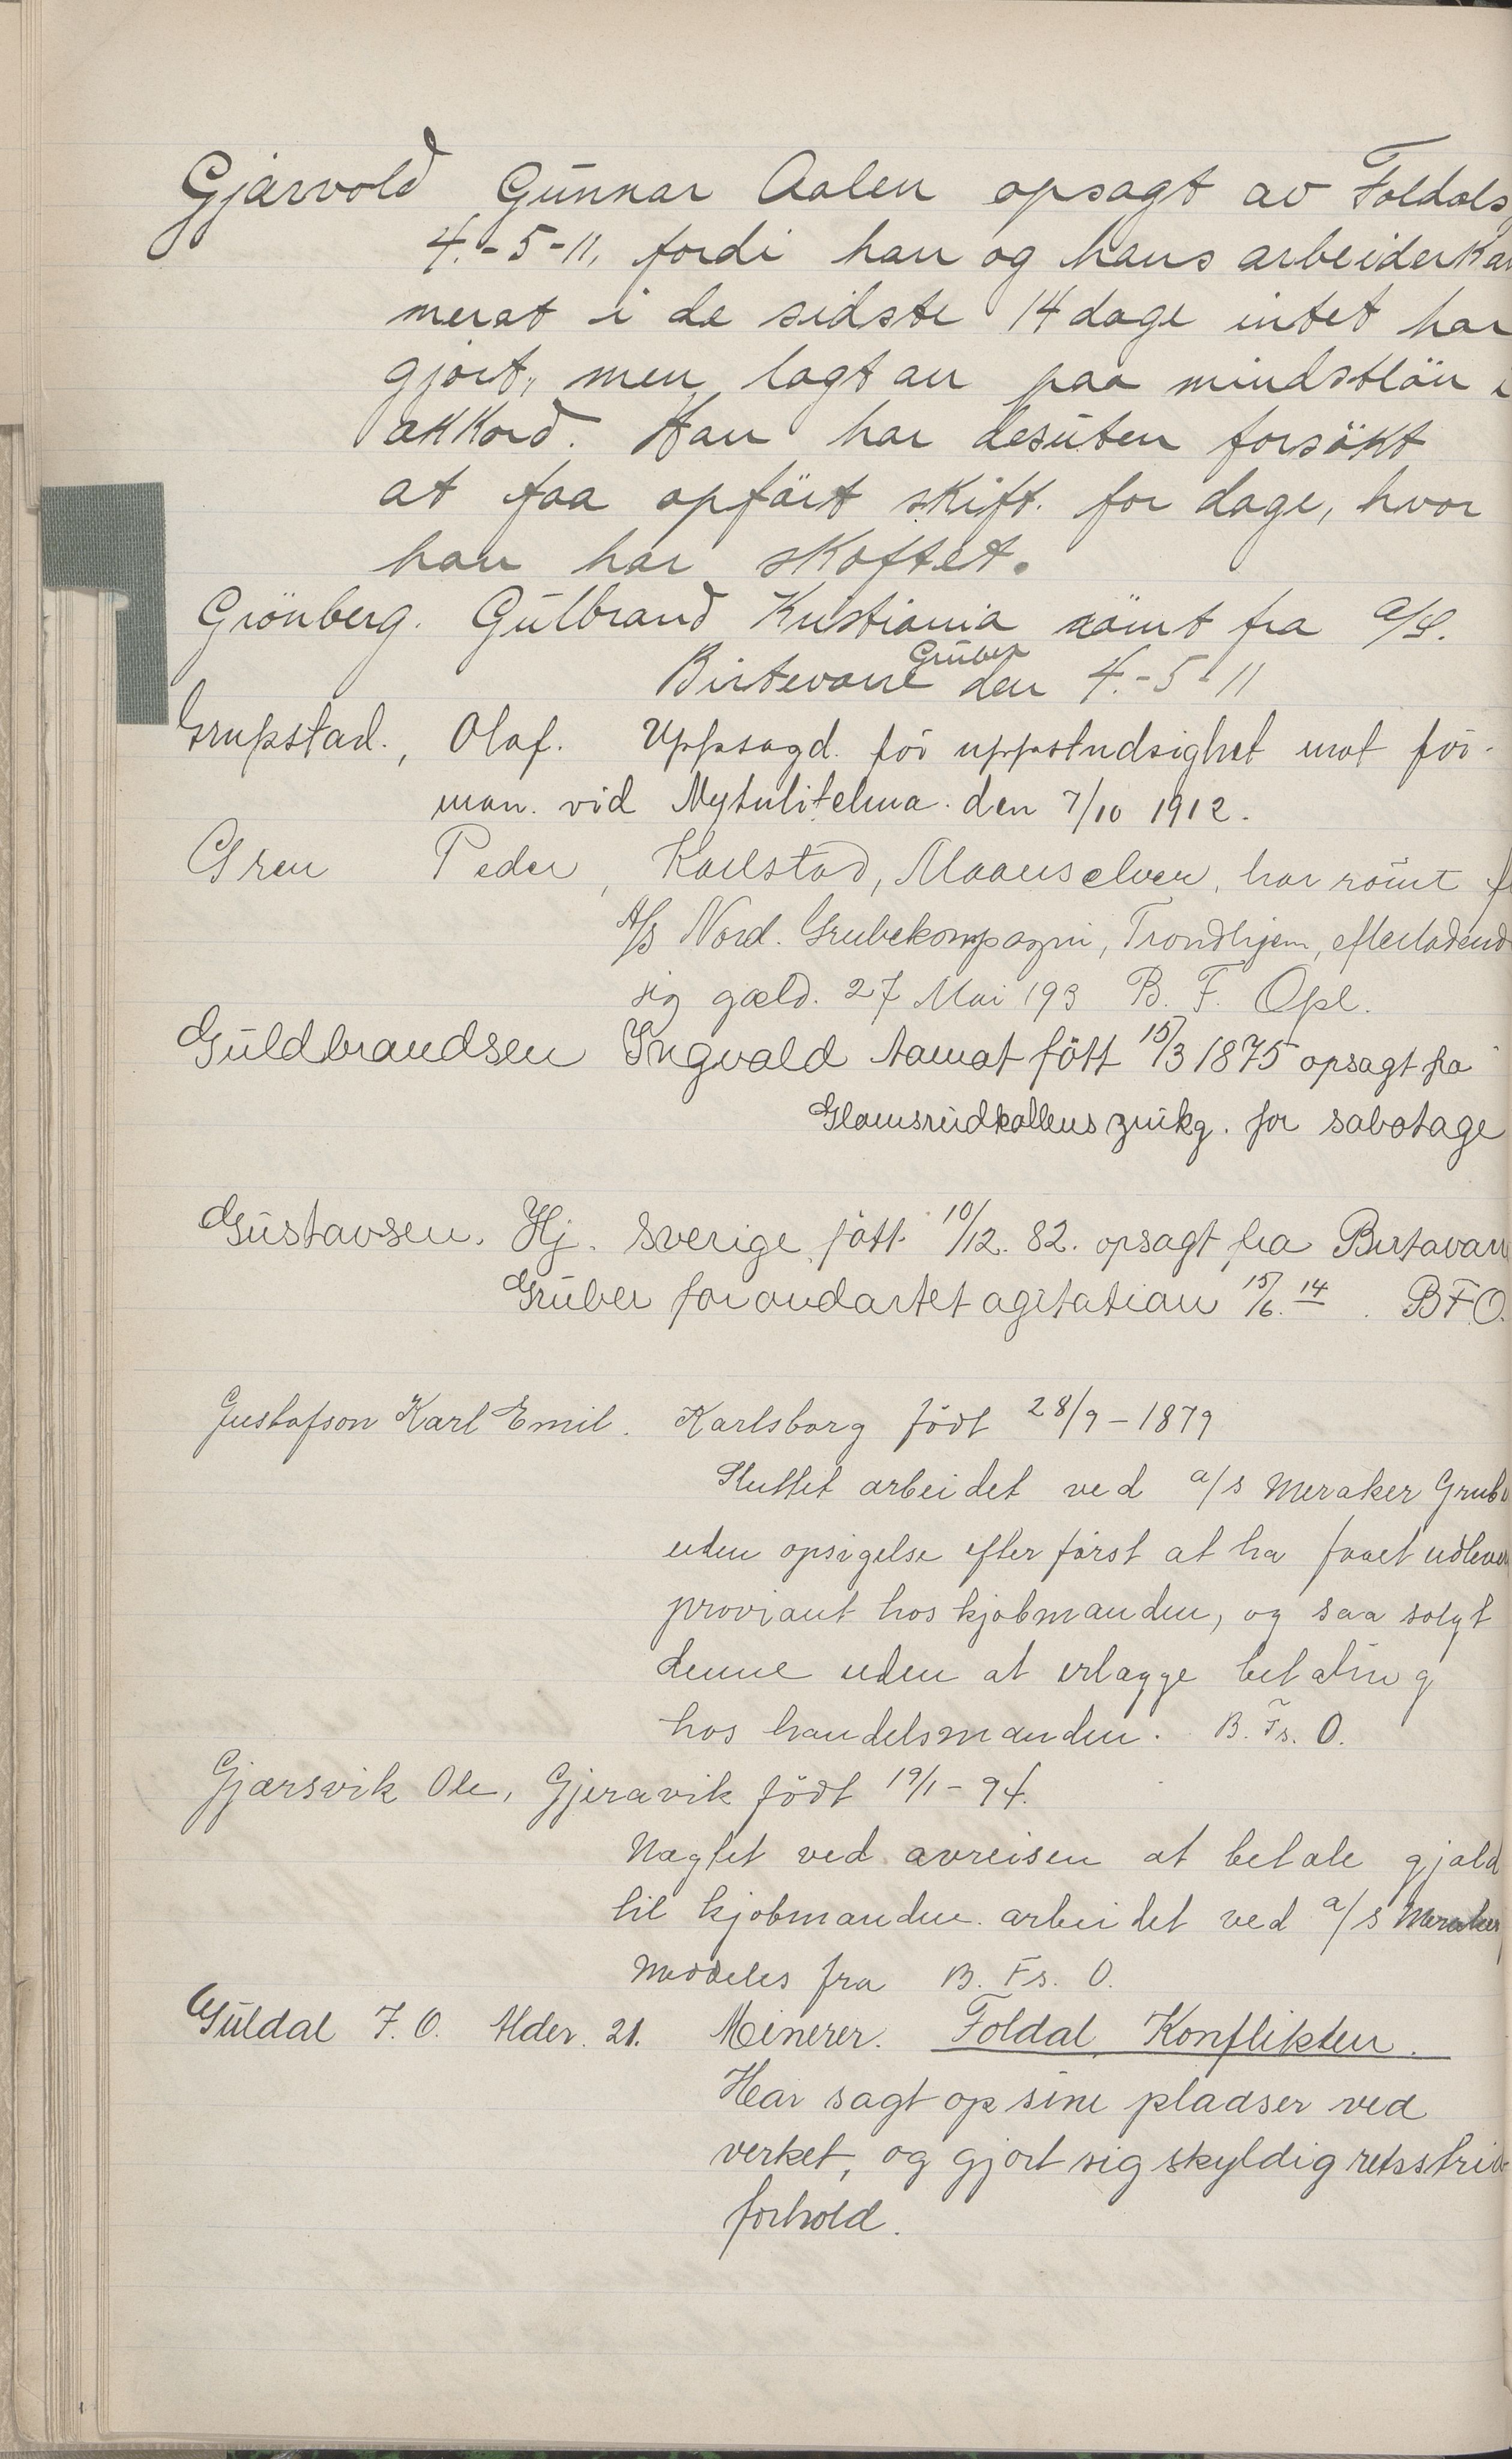 Gjärvold Gunnar Aalen opsagt av Foldals
4.-5-11, fordi han og hans arbeiderka
merat i de sidste 14 dage intet har
gjort, men lagt an paa mindstlön i
akkord. Han har desuten forsökt
at faa opfört skift. for dage, hvor
han har skoftet.
Grönberg. Gulbrand Kristiania römt fra a/S.
Birtevarre Gruber den 4.-5-11
Olaf. Uppsagd för uppstudsighet mot för-
man. vid den 7/10 1912.
Gren Peder, Karlstad, Maanselven, har römt
A/S Nord. Grubekompagni, Trondhjem, efterladend
sig gæld. 27 Mai 193 B. F. Opl.
Guldbrandsen Ingvald Aamot fött 15/3 1875 opsagt fra
Glamsrudkollens zinkg. for sabotage
Gustavsen. Hj. Sverige, fött 10/12. 82. opsagt fra Birtavar
Gruber for ondartet agitation 15/6. 14. BFO.
Gustafson Karl Emil. Karlsborg födt 28/9-1879
Sluttet arbeidet ved a/s Meraker Grub
uden opsigelse efter först at ha faaet udlever
proviant hos kjobmanden, og saa solgt
denne uden at erlægge betaling
hos handelsmanden. B. Fs. O.
Gjærsvik Ole, Gjeravik födt 19/1-94.
Nægtet ved avreisen at betale gjæld
til kjobmanden. arbeidet ved a/s Meraker
Meddeles fra B. Fs. O.
Guldal J. O. Alder. 21. Minerer. Foldal Konflikten.
Har sagt op sine pladser ved
verket, og gjort sig skyldig retsstrid
forhold.